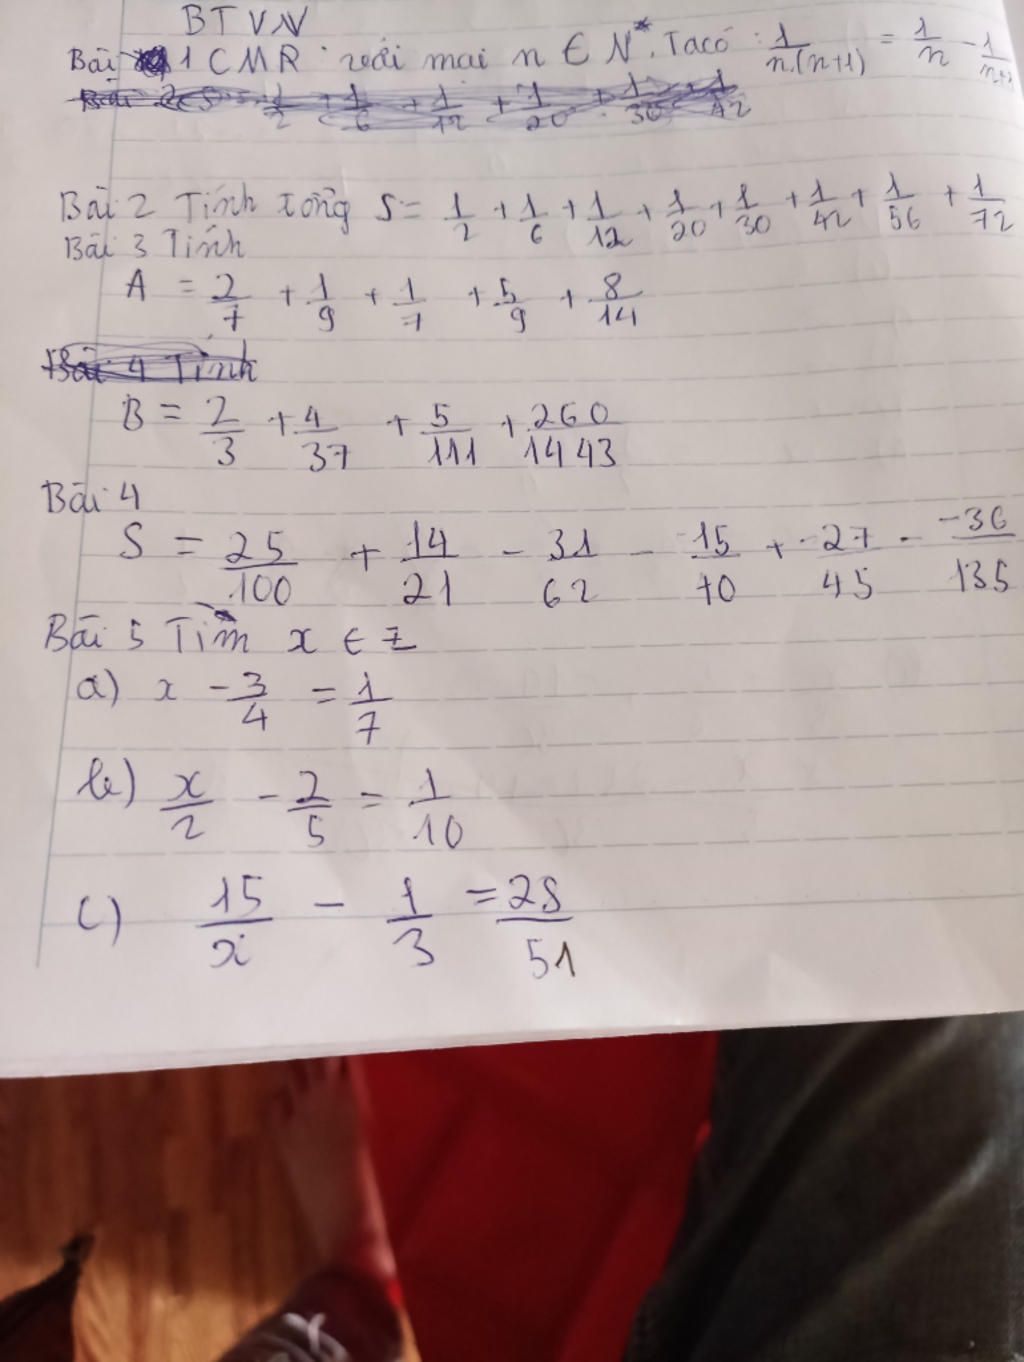 BTVN
Bài 1 CMR : với mọi n ∈ N*. Ta có : 1/n.(n+1) = 1/n - 1/n+1
Bài 2 Tính tổng S = 1/2 + 1/6 + 1/12 + 1/20 + 1/30 + 1/42 + 1/56 + 1/72
Bài 3 Tính
A = 2/7 + 1/9 + 1/7 + 5/9 + 8/14
B = 2/3 + 4/37 + 5/111 + 260/1443
Bài 4
S = 25/100 + 14/21 - 31/62 - 15/70 + -27/45 - -36/135
Bài 5 Tìm x ∈ Z
a) x - 3/4 = 1/7
b) x/2 - 2/5 = 1/10
c) 15/x - 1/3 = 28/51